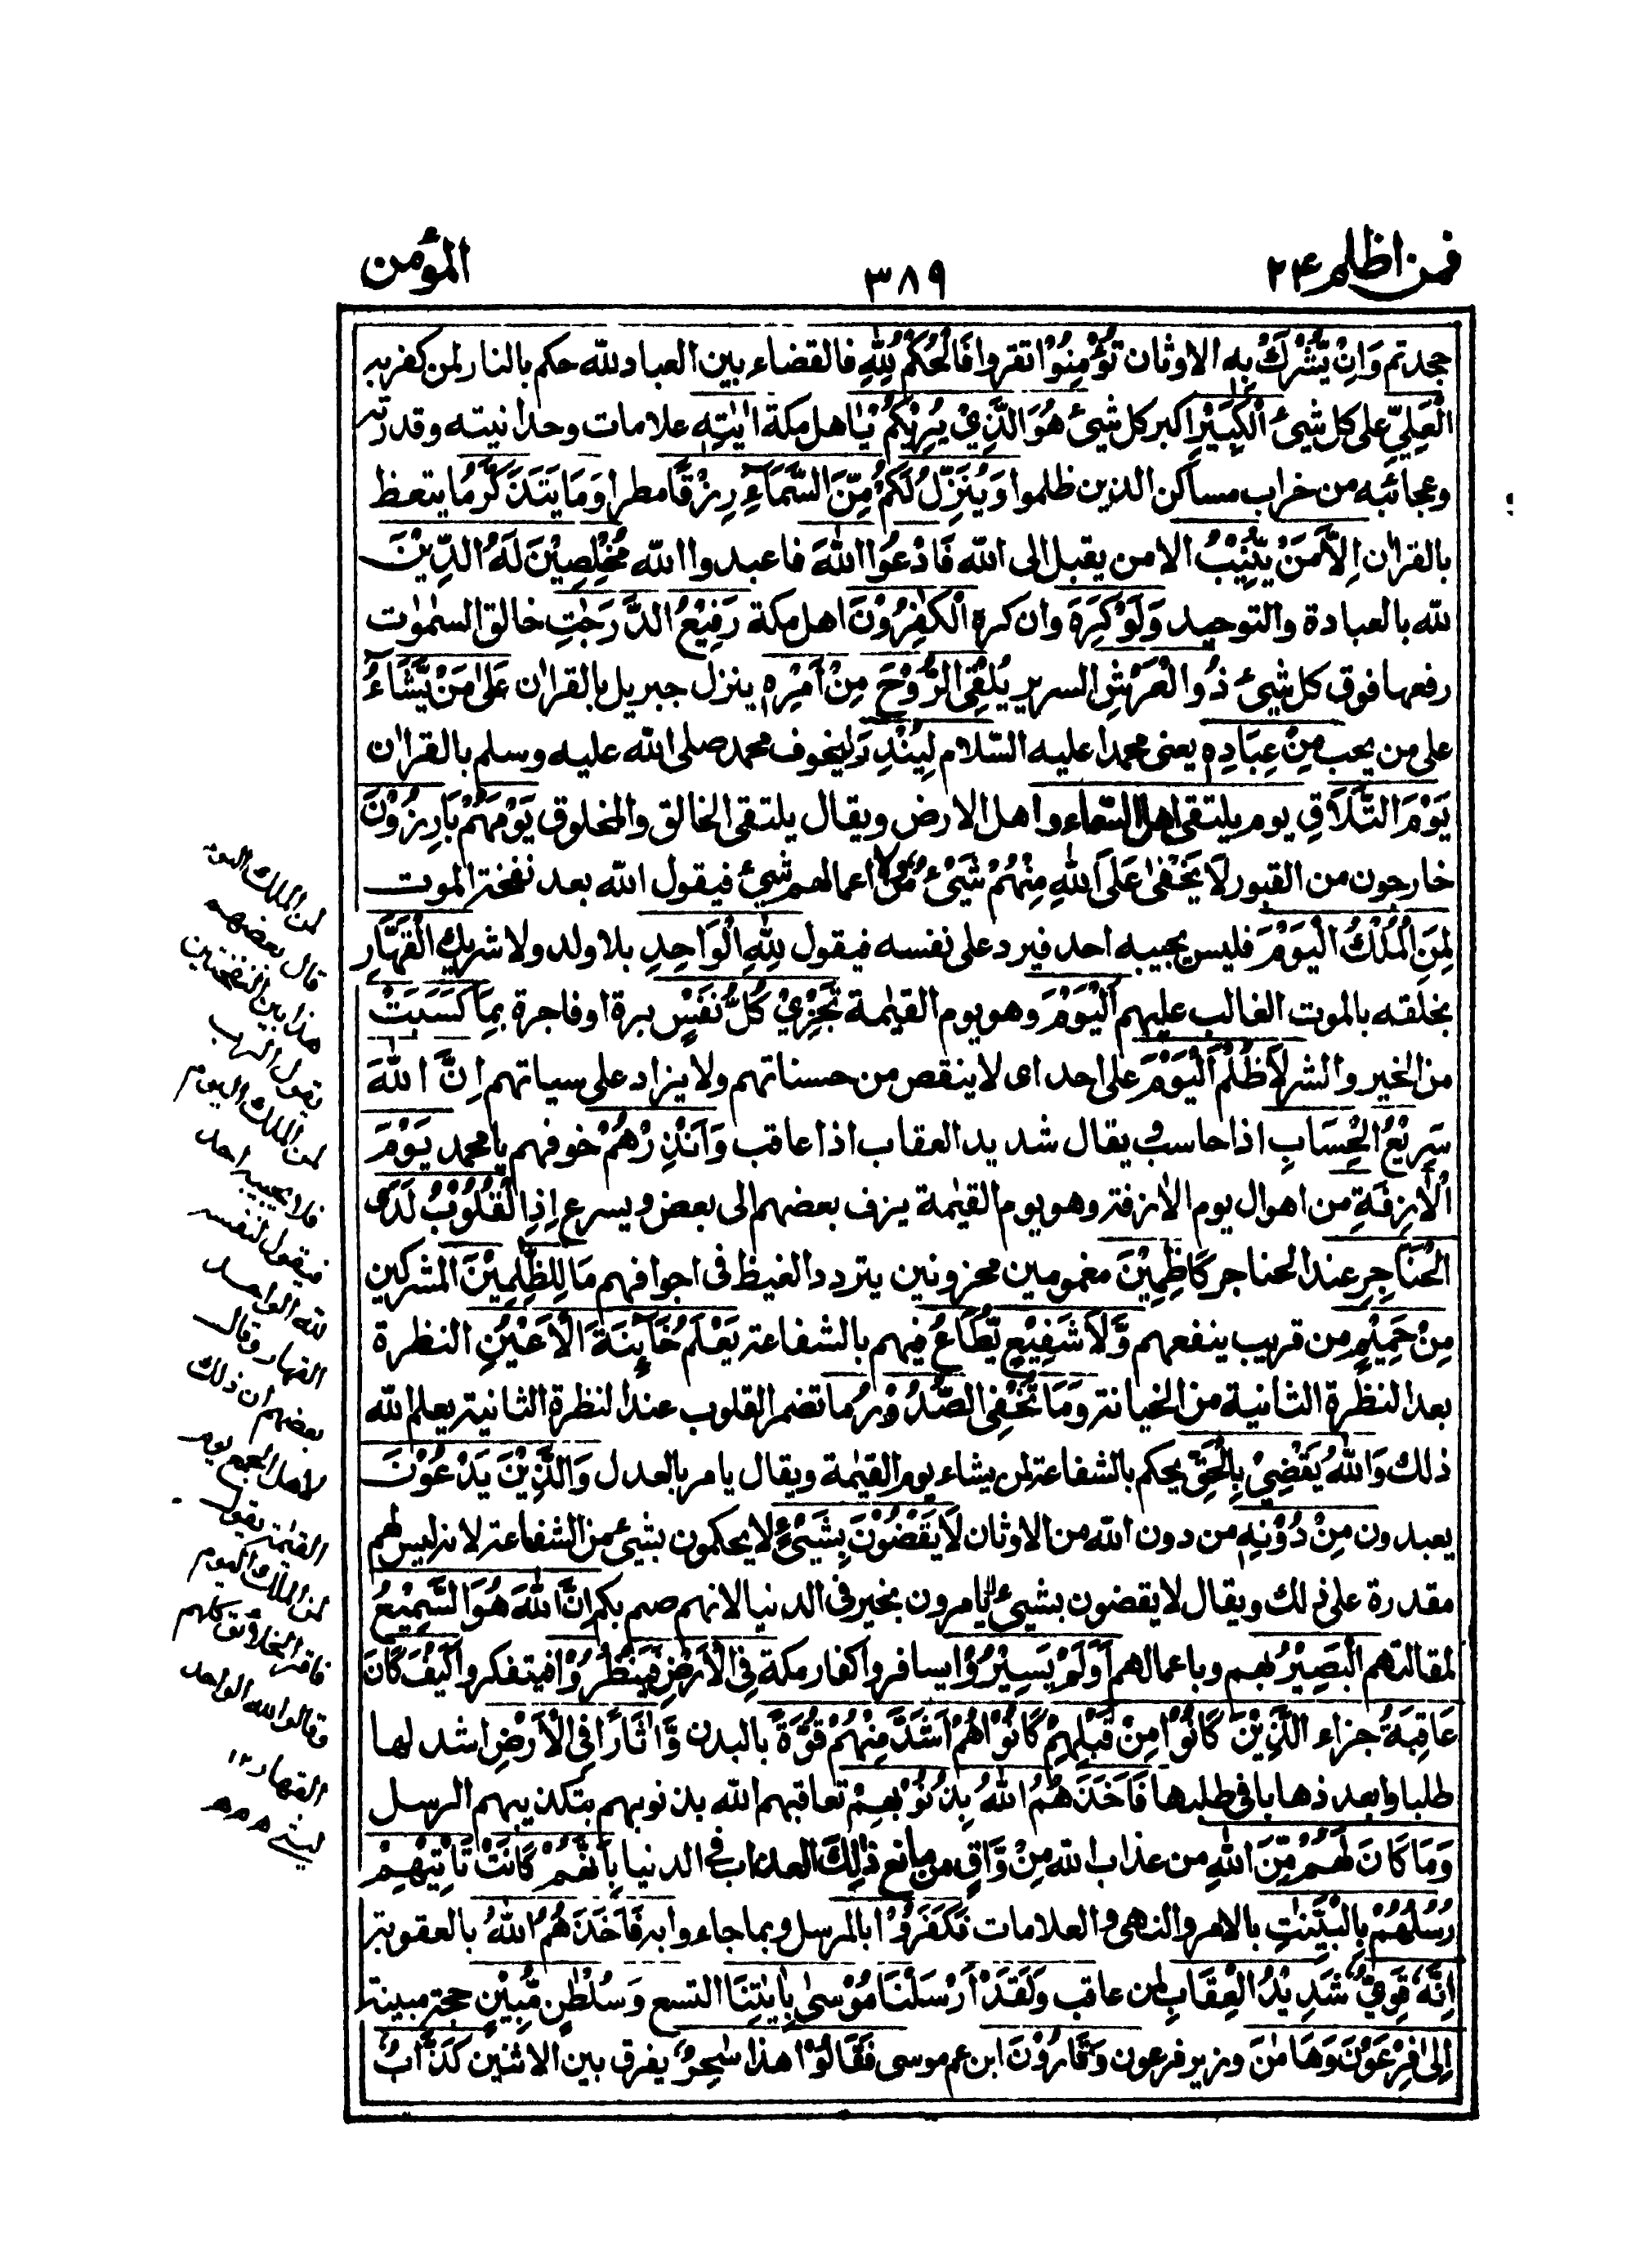 فمن اظلم ٢٤
٣٨٩
المؤمن
جحدتم وَاِنْ يُّشْرَكْ بِهٖ الاوثان تُؤْمِنُوْا تقروا فَالْحُكْمُ لِلّٰهِ فالقضاء بين العباد لله حكم بالنار لمن كفر به
الْعَلِيِّ على كل شيئ الْكَبِيْرِ اكبر كل شيئ هُوَ الَّذِيْ يُرِيْكُمْ يا اهل مكة اٰيٰتِهٖ علامات وحدانيته وقدرته
وعجائبه من خراب مساكن الذين ظلموا وَيُنَزِّلُ لَكُمْ مِّنَ السَّمَآءِ رِزْقًا مطرا وَمَا يَتَذَكَّرُ ما يتعظ
بالقراٰن اِلَّا مَنْ يُّنِيْبُ الا من يقبل الى الله فَادْعُوا اللّٰهَ فاعبدوا الله مُخْلِصِيْنَ لَهُ الدِّيْنَ
لله بالعبادة والتوحيد وَلَوْ كَرِهَ وان كره الْكٰفِرُوْنَ اهل مكة رَفِيْعُ الدَّرَجٰتِ خالق السمٰوٰت
رفعها فوق كل شيئ ذُو الْعَرْشِ السرير يُلْقِى الرُّوْحَ مِنْ اَمْرِهٖ ينزل جبريل بالقراٰن عَلٰى مَنْ يَّشَآءُ
على من يحب مِنْ عِبَادِهٖ يعنى محمدا عليه السلام لِيُنْذِرَ ليخوف محمد صلى الله عليه وسلم بالقراٰن
يَوْمَ التَّلَاقِ يوم يلتقى اهل السماء واهل الارض ويقال يلتقى الخالق والمخلوق يَوْمَ هُمْ بَارِزُوْنَ
خارجون من القبور لَا يَخْفٰى عَلَى اللّٰهِ مِنْهُمْ شَيْئٌ ولا من اعمالهم شيئ فيقول الله بعد نفخة الموت
لِمَنِ الْمُلْكُ الْيَوْمَ فليس يجيبه احد فيرد على نفسه فيقول لِلّٰهِ الْوَاحِدِ بلا ولد ولا شريك الْقَهَّارِ
بخلقه بالموت الغالب عليهم اَلْيَوْمَ وهو يوم القيٰمة تُجْزٰى كُلُّ نَفْسٍ برة او فاجرة بِمَا كَسَبَتْ
من الخير والشر لَا ظُلْمَ الْيَوْمَ على احد اى لا ينقص من حسناتهم ولا يزاد على سياتهم اِنَّ اللّٰهَ
سَرِيْعُ الْحِسَابِ اذا حاسب ويقال شديد العقاب اذا عاقب وَاَنْذِرْهُمْ خوفهم يا محمد يَوْمَ
الْاٰزِفَةِ من اهوال يوم الاٰزفة وهو يوم القيٰمة يزف بعضهم الى بعض ويسرع اِذِ الْقُلُوْبُ لَدَى
الْحَنَاجِرِ عند الحناجر كَاظِمِيْنَ مغمومين محزونين يتردد الغيظ فى اجوافهم مَا لِلظّٰلِمِيْنَ المشركين
مِنْ حَمِيْمٍ من قريب ينفعهم وَّلَا شَفِيْعٍ يُّطَاعُ فيهم بالشفاعة يَعْلَمُ خَآئِنَةَ الْاَعْيُنِ النظرة
بعد النظرة الثانية من الخيانة وَمَا تُخْفِى الصُّدُوْرُ ما تضمر القلوب عند النظرة الثانية يعلم الله
ذلك وَاللّٰهُ يَقْضِيْ بِالْحَقِّ يحكم بالشفاعة لمن يشاء يوم القيٰمة ويقال يامر بالعدل وَالَّذِيْنَ يَدْعُوْنَ
يعبدون مِنْ دُوْنِهٖ من دون الله من الاوثان لَا يَقْضُوْنَ بِشَيْئٍ لا يحكمون بشيئ من الشفاعة لانه ليس لهم
مقدرة على ذلك ويقال لا يقضون بشيئ لا يامرون بخير فى الدنيا لانهم صم بكم اِنَّ اللّٰهَ هُوَ السَّمِيْعُ
لمقالتهم الْبَصِيْرُ بهم وباعمالهم اَوَلَمْ يَسِيْرُوْا يسافروا كفار مكة فِى الْاَرْضِ فَيَنْظُرُوْا فيتفكروا كَيْفَ كَانَ
عَاقِبَةُ جزاء الَّذِيْنَ كَانُوْا مِنْ قَبْلِهِمْ كَانُوْا هُمْ اَشَدَّ مِنْهُمْ قُوَّةً بالبدن وَّاٰثَارًا فِى الْاَرْضِ اشد لها
طلبا وابعد ذهابا فى طلبها فَاَخَذَهُمُ اللّٰهُ بِذُنُوْبِهِمْ فعاقبهم الله بذنوبهم بتكذيبهم الرسل
وَمَا كَانَ لَهُمْ مِّنَ اللّٰهِ من عذاب الله مِنْ وَّاقٍ من مانع ذٰلِكَ العذاب فى الدنيا بِاَنَّهُمْ كَانَتْ تَّاْتِيْهِمْ
رُسُلُهُمْ بِالْبَيِّنٰتِ بالامر والنهى والعلامات فَكَفَرُوْا بالرسل وبما جاءوا به فَاَخَذَهُمُ اللّٰهُ بالعقوبة
اِنَّهٗ قَوِيٌّ شَدِيْدُ الْعِقَابِ لمن عاقب وَلَقَدْ اَرْسَلْنَا مُوْسٰى بِاٰيٰتِنَا التسع وَسُلْطٰنٍ مُّبِيْنٍ حجة مبينة
اِلٰى فِرْعَوْنَ وَهَامٰنَ وزير فرعون وَقَارُوْنَ ابن عم موسى فَقَالُوْا هذا سٰحِرٌ يفرق بين الاثنين كَذَّابٌ
لمن الملك اليوم
قال بعضهم
هذا بين النفختين
يقول الرب
لمن الملك اليوم
فلا يجيبه احد
فيقول لنفسه
لله الواحد
القهار وقال
بعضهم ان ذلك
لاهل الجمع يوم
القيٰمة يقول
لمن الملك اليوم
فاقر الخلائق كلهم
وقالوا لله الواحد
القهار ١٢